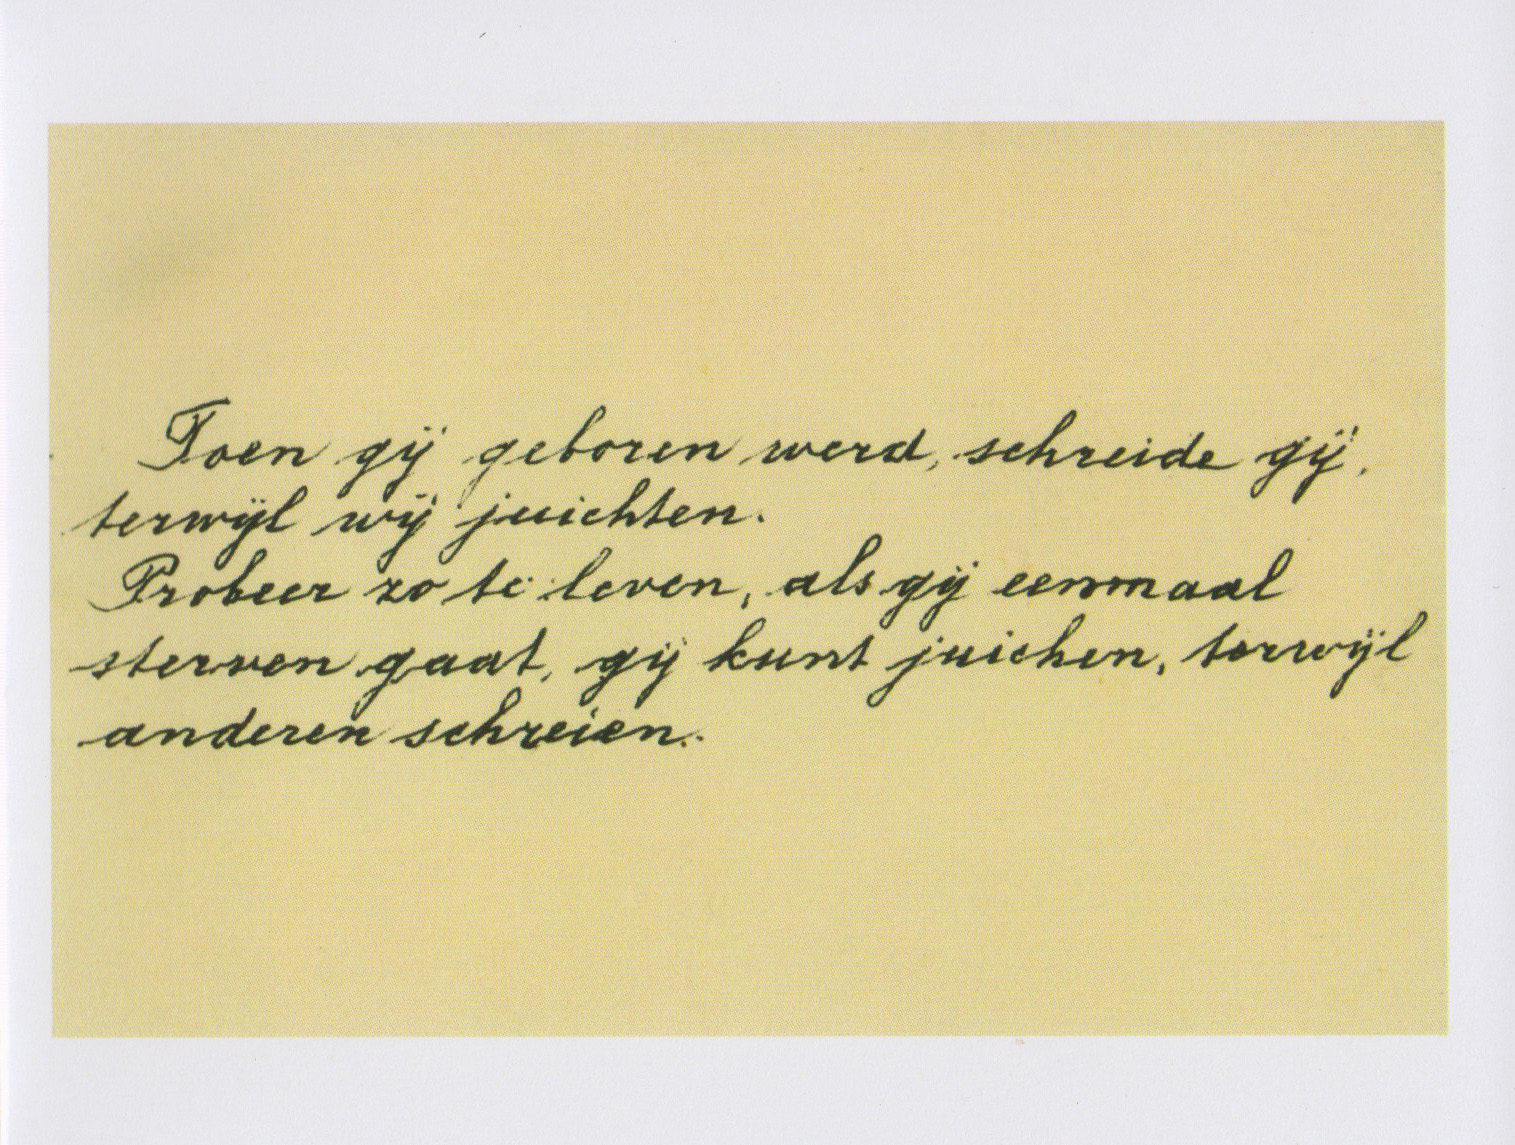 Toen gij geboren werd, schreide gij,
terwijl wij juichten.
Probeer zo te leven, als gij eenmaal
sterven gaat, gij kunt juichen, terwijl
anderen schreien.